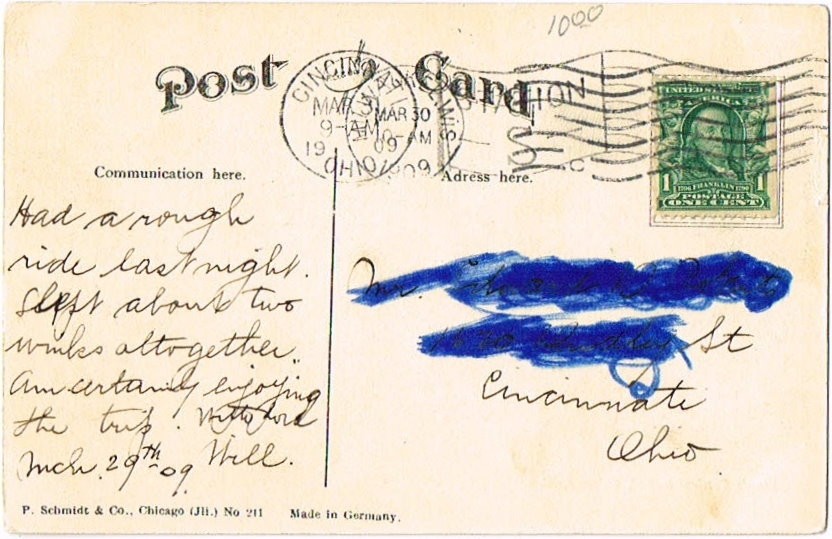 1000
Post Card
CINCINNATI
MAR 31
9-AM
19 09
OHIO
MAR 30
-AM
09
WIS.
STATION
C
UNITED STATES OF AMERICA
1 1706 FRANKLIN 1790 1
POSTAGE
ONE CENT
Communication here.
Adress here.
Had a rough
ride last night.
Slept about two
winks altogether.
Am certainly enjoying
the trip. With love
Mch. 29th-09 Will.
Mr.
St
Cincinnati
Ohio
P. Schmidt & Co., Chicago (Jli.) No 211 Made in Germany.